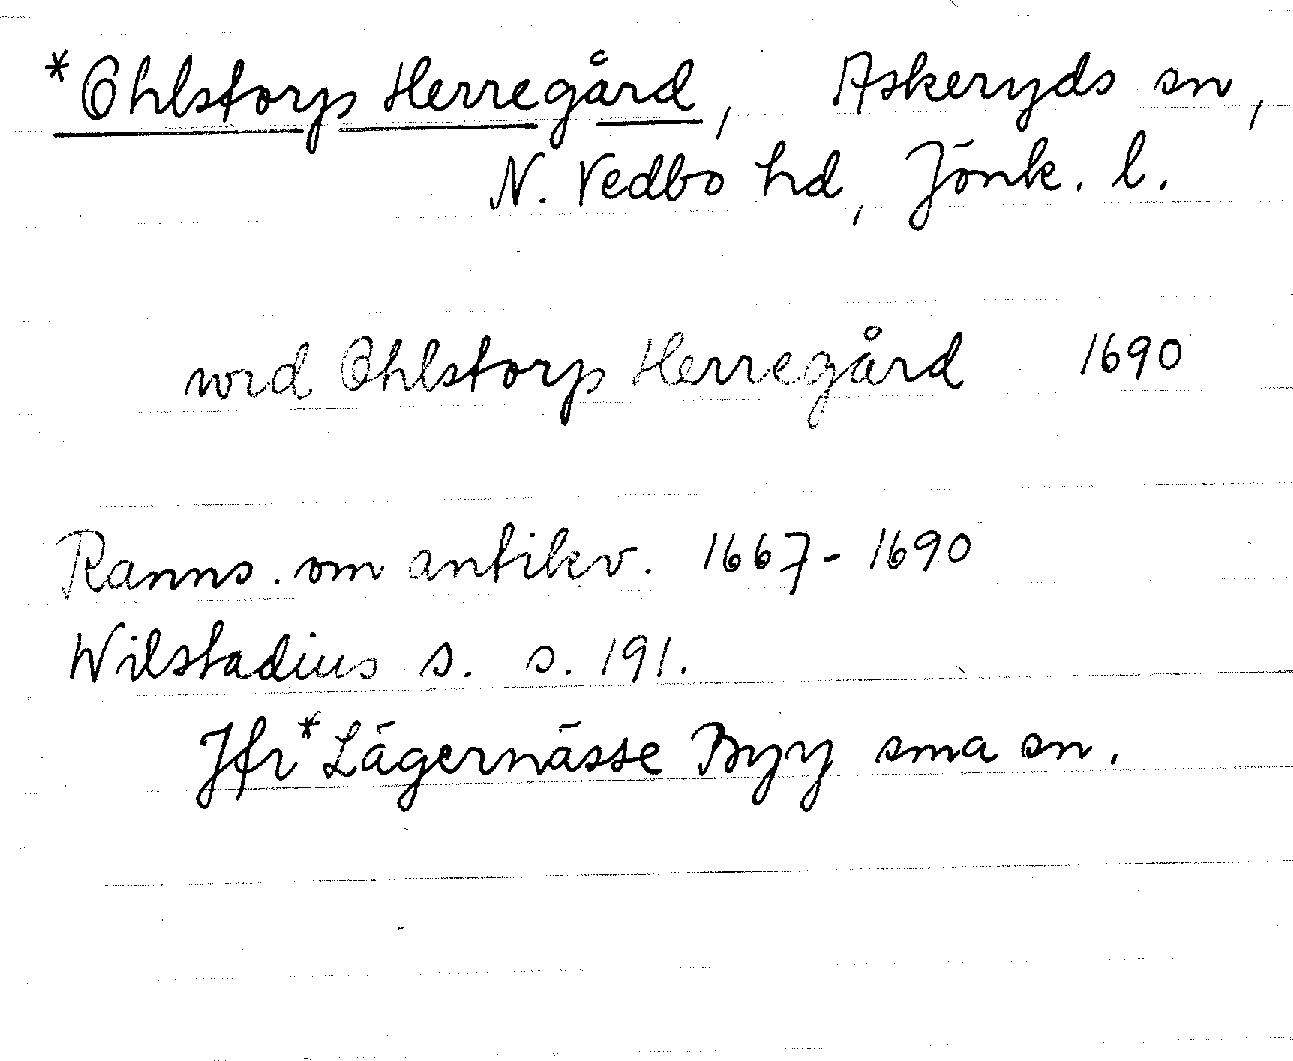 *Ohlstorps Herregård, Askeryds sn,
N. Vedbo hd, Jönk. l.
wid Ohlstorps Herregård 1690
Ranns. om antikv. 1667-1690
Wilstadius s. s. 191.
Jfr *Lägernässe Byy sma sn.